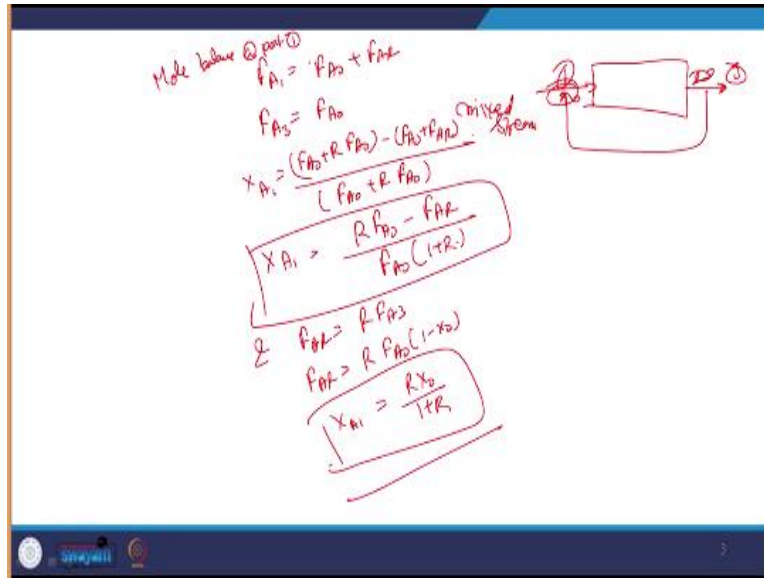 Mole balance @ point ①
F_A1 = F_A0 + F_AR
F_A3 = F_A0
X_A1 = (F_A0 + R F_A0) - (F_A0 + F_AR) / (F_A0 + R F_A0) mixed stream
X_A1 = R F_A0 - F_AR / F_A0 (1+R)
& F_AR = R F_A3
F_AR = R F_A0 (1-X_0)
X_A1 = R X_0 / 1+R
①
③
swayam
3